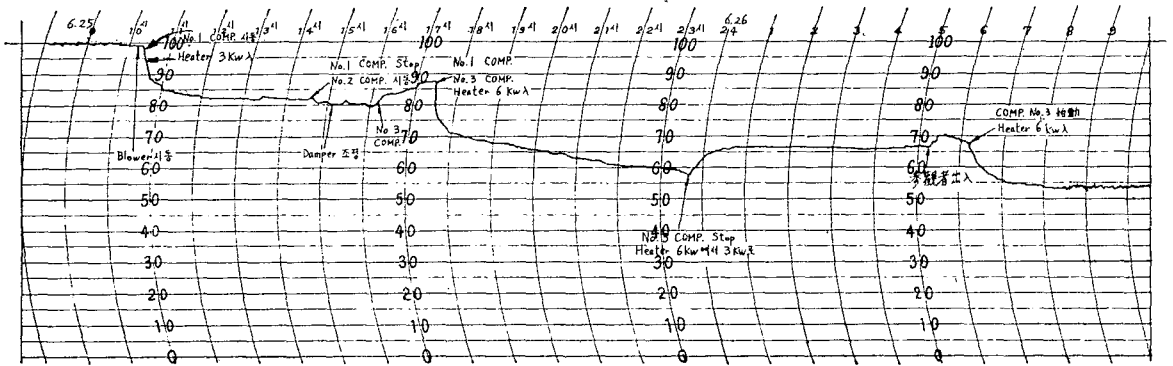 6.25
10시
11시
12시
13시
14시
15시
16시
17시
18시
19시
20시
21시
22시
23시
6.26
24
1
2
3.
4
5
6
7
8
9
No.1 COMP 시동
Heater 3Kw入
Blower 시동
No.1 COMP. Stop
No.2 COMP. 시동
Damper 조정
No 3
COMP.
No.1 COMP.
No.3 COMP.
Heater 6 Kw入
No.3 COMP. Stop
Heater 6Kw에서 3Kw로
COMP. No.3 始動
Heater 6 Kw入
参観者出入
100
90
80
70
60
50
40
30
20
10
0
100
90
80
70
60
50
40
30
20
10
0
100
90
80
70
60
50
40
30
20
10
0
100
90
80
70
60
50
40
30
20
10
0